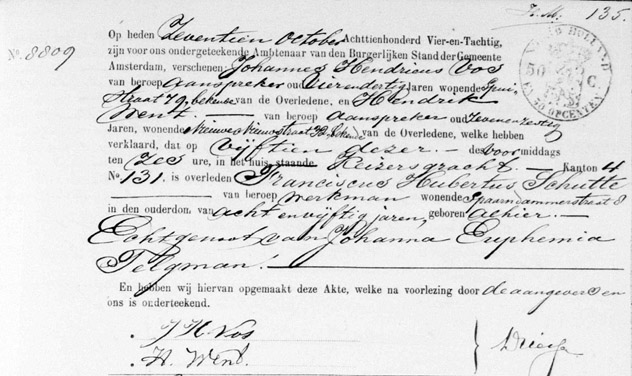 F. M. 135.
No. 8809
Op heden Zeventien October Achttienhonderd Vier-en-Tachtig,
zijn voor ons ondergeteekende Ambtenaar van den Burgerlijken Stand der Gemeente
Amsterdam, verschenen Johannes Hendricus Vos
van beroep Aanspreker oud Vierendertig jaren, wonende Spui-
straat 79, bekende van de Overledene, en Hendrik
Went. van beroep aanspreker oud Zevenenzestig
Jaren, wonende Nieuwe bekende van de Overledene, welke hebben
verklaard, dat op vijftien dezer. — des voormiddags
ten Zes ure, in het huis staande Keizersgracht — Kanton 4
No. 131. is overleden Franciscus Hubertus Schutte
van beroep Werkman wonende Spaarndammerstraat 8
in den ouderdom van acht en vijftig jaren, geboren alhier. —
Echtgenoot van Johanna Euphemia
Telgman. —
En hebben wij hiervan opgemaakt deze Akte, welke na voorlezing door de aangevers en
ons is onderteekend.
J H Vos
H. Went.